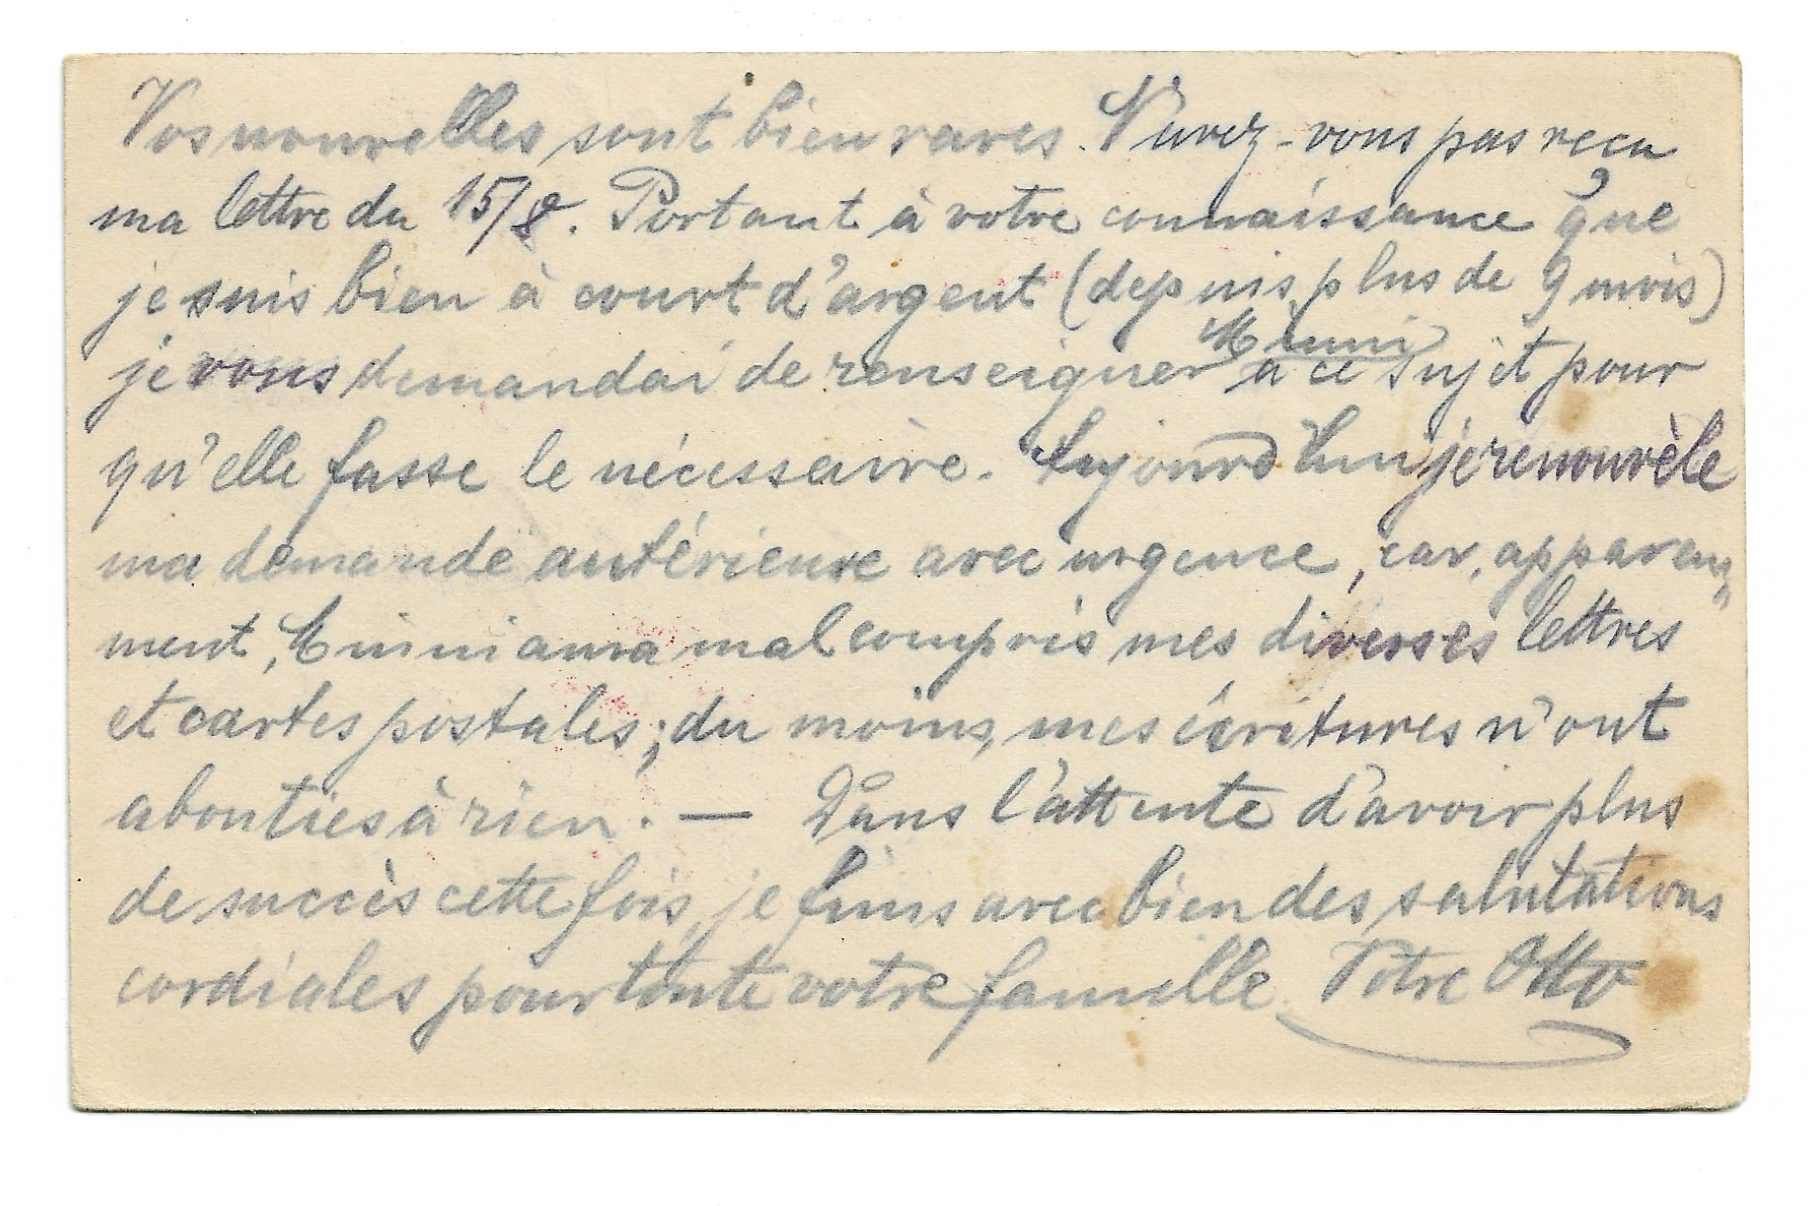 Vos nouvelles sont bien rares. N'avez-vous pas reçu
ma lettre du 15/8. Portant à votre connaissance que
je suis bien à court d'argent (depuis plus de 9 mois)
je vous demandai de renseigner Mimi à ce sujet pour
qu'elle fasse le nécessaire. Aujourd'hui je renouvèle
ma demande antérieure avec urgence, car, apparem-
ment, Mimi aura mal compris mes diverses lettres
et cartes postales; du moins, mes écritures n'ont
abouties à rien. — Dans l'attente d'avoir plus
de succès cette fois, je finis avec bien des salutations
cordiales pour toute votre famille. Votre Otto